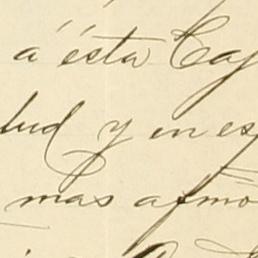 a ésta Cap
lud y en es
mas afmo